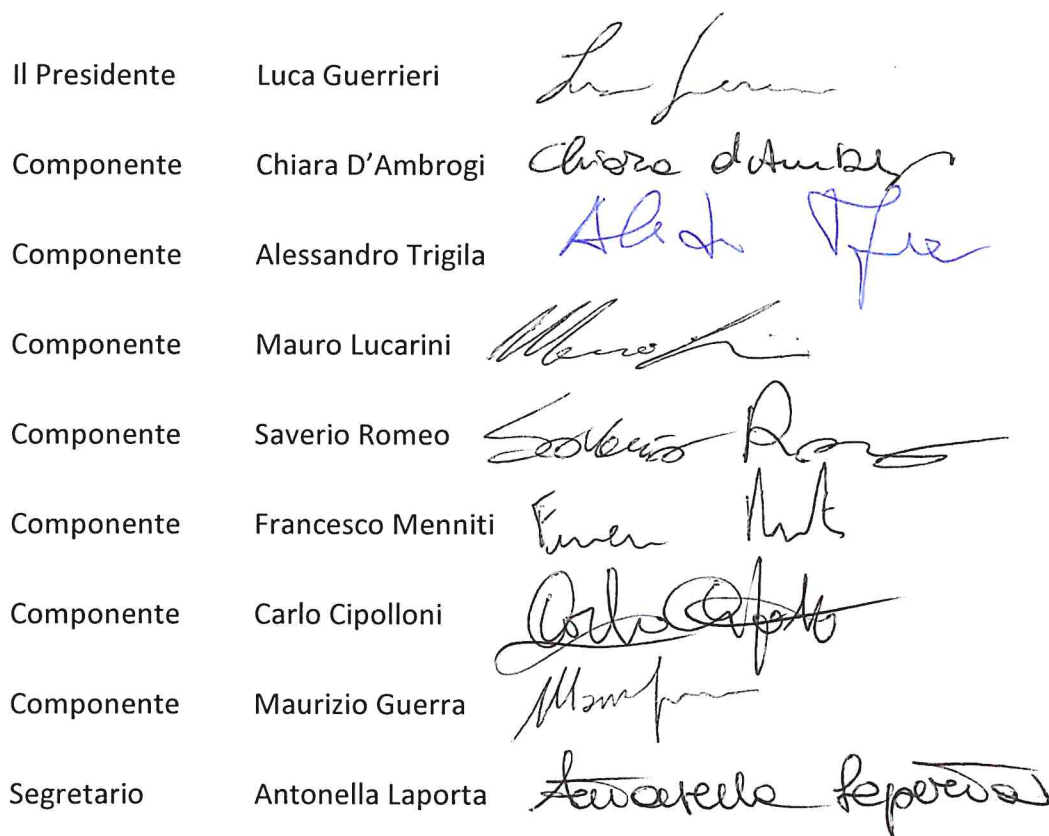 Il Presidente Luca Guerrieri
Componente Chiara D'Ambrogi Chiara d'Ambrogi
Componente Alessandro Trigila
Componente Mauro Lucarini
Componente Saverio Romeo Saverio Romeo
Componente Francesco Menniti
Componente Carlo Cipolloni Carlo
Componente Maurizio Guerra
Segretario Antonella Laporta Antonella Laporta